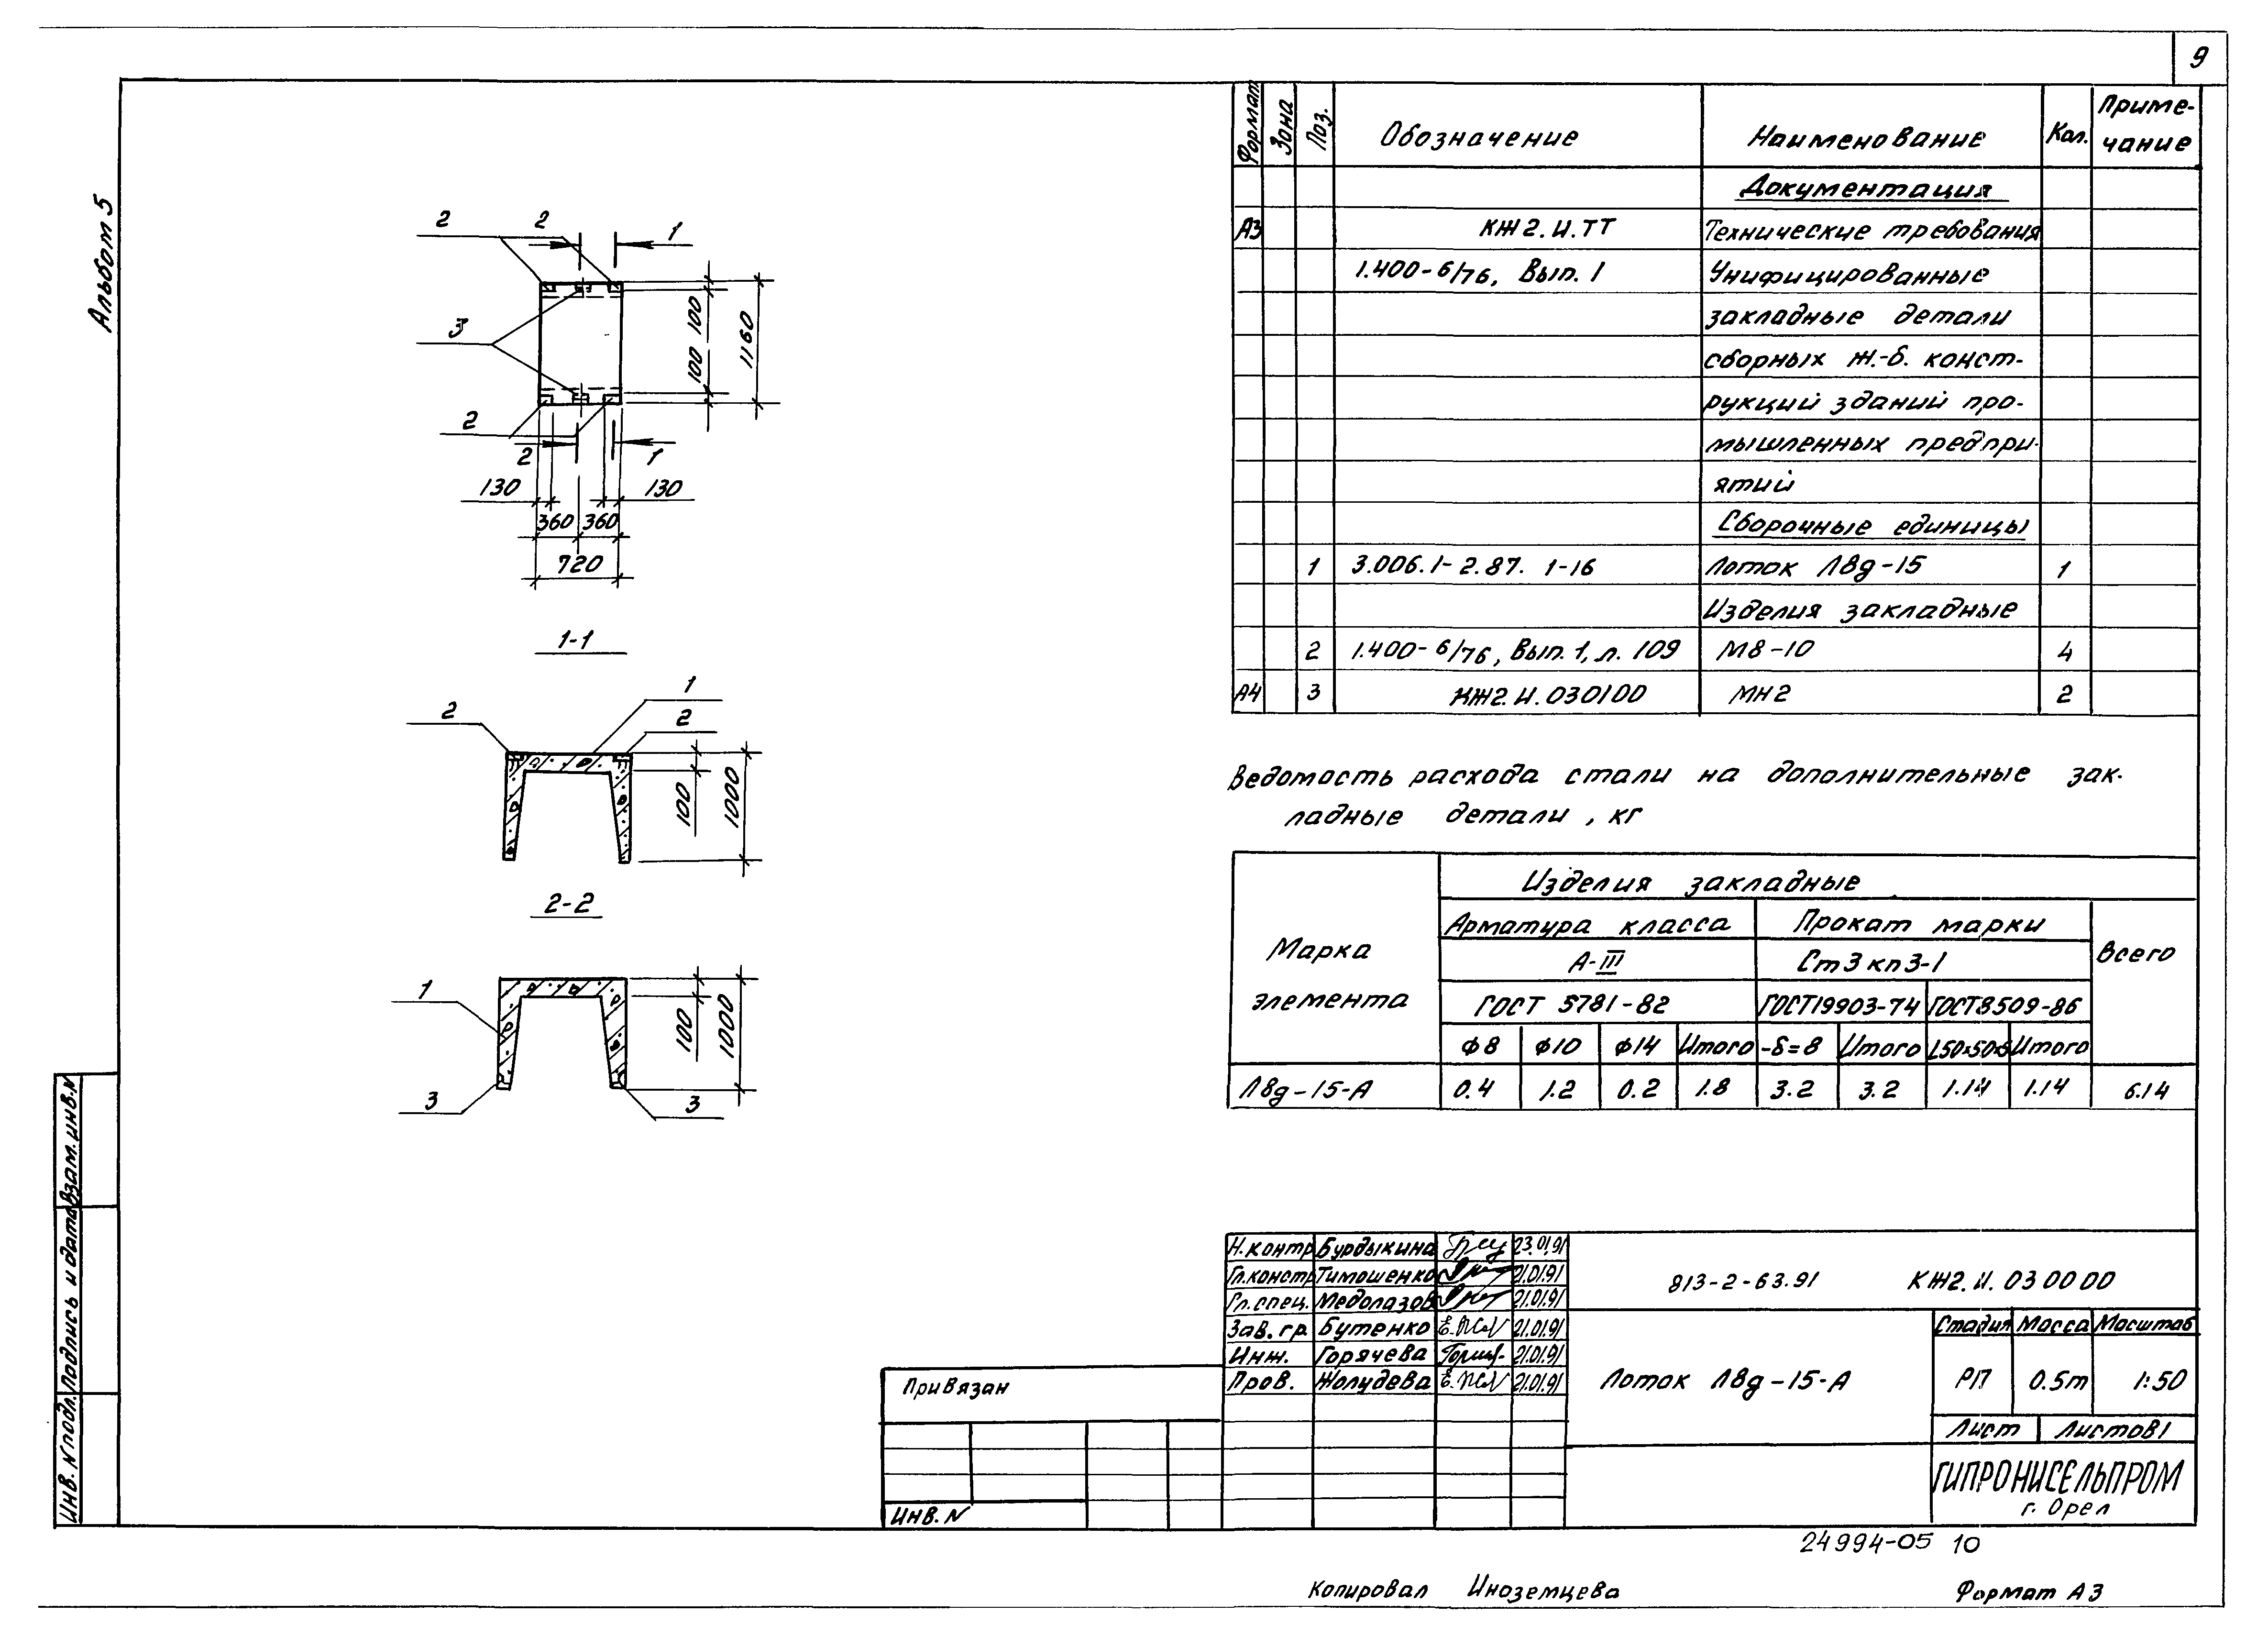 9
Альбом 5
2 2 1
3
100 100
1160
2
2 1
130 130
360 360
720
1-1
1
2 2
100
1000
2-2
1
100
1000
3 3
Формат Зона Поз. Обозначение Наименование Кол. Приме-
чание
Документация
А3 КЖ2.И.ТТ Технические требования
1.400-6/76, Вып. 1 Унифицированные
закладные детали
сборных ж.-б. конст-
рукций зданий про-
мышленных предпри-
ятий
Сборочные единицы
1 3.006.1-2.87. 1-16 Лоток Л8д-15 1
Изделия закладные
2 1.400-6/76, Вып. 1, л. 109 М8-10 4
А4 3 КЖ2.И.030100 МН2 2
Ведомость расхода стали на дополнительные зак-
ладные детали, кг
Марка
элемента
Изделия закладные
Арматура класса Прокат марки
Всего
А-III Ст3кп3-1
ГОСТ 5781-82 ГОСТ19903-74 ГОСТ8509-86
Ф8 Ф10 Ф14 Итого -δ=8 Итого L50×50×5 Итого
Л8д-15-А 0.4 1.2 0.2 1.8 3.2 3.2 1.14 1.14 6.14
Н.контр Бурдыкина 23.01.91
Гл.констр Тимошенко 21.01.91
Гл.спец. Медолазов 21.01.91
Зав.гр. Бутенко 21.01.91
Инж. Горячева 21.01.91
Пров. Жолудева 21.01.91
813-2-63.91 КЖ2.И.030000
Лоток Л8д-15-А
Стадия Масса Масштаб
РП 0.5т 1:50
Лист Листов 1
ГИПРОНИСЕЛЬПРОМ
г. Орел
Привязан
Инв. N
Инв. N подл. Подпись и дата Взам. инв. N
24994-05 10
Копировал Иноземцева Формат А3